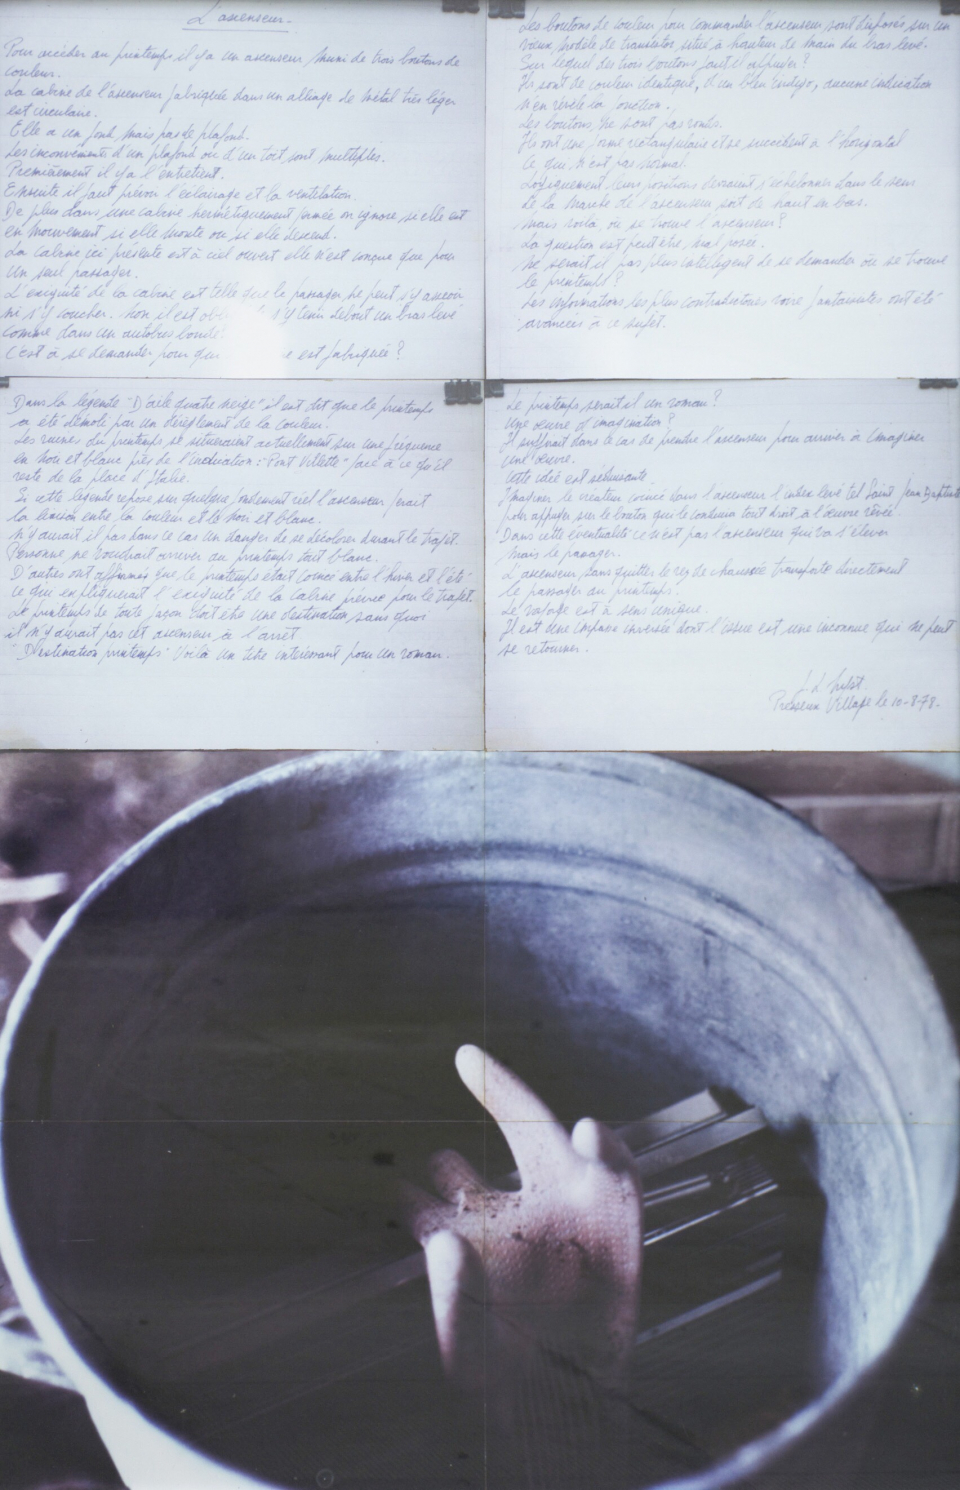 L'ascenseur.
Pour accéder au printemps il y a un ascenseur muni de trois boutons de
couleur.
La cabine de l'ascenseur fabriquée dans un alliage de métal très léger
est circulaire.
Elle a un fond mais pas de plafond.
Les inconvénients d'un plafond ou d'un toit sont multiples.
Premièrement il y a l'entretient.
Ensuite il faut prévoir l'éclairage et la ventilation.
De plus dans une cabine hermétiquement fermée on ignore, si elle est
en mouvement si elle monte ou si elle descend.
La cabine ici présente est à ciel ouvert elle n'est conçue que pour
un seul passager.
L'exiguité de la cabine est telle que le passager ne peut s'y asseoir
ni s'y coucher. Non il est s'y tenir debout un bras levé
comme dans un autobus bondé.
C'est à se demander pour qui est fabriquée?
Les boutons de couleur pour commander l'ascenseur sont disposés sur un
vieux modèle de transistor situé à hauteur de main du bras levé.
Sur lequel des trois boutons faut-il appuyer?
Ils sont de couleur identique, d'un bleu indigo, aucune indication
n'en révèle la fonction.
Les boutons, ne sont pas ronds.
Ils ont une forme rectangulaire et se succèdent à l'horizontal
ce qui n'est pas normal.
Logiquement leurs positions devraient s'échelonner dans le sens
de la marche de l'ascenseur soit de haut en bas.
Mais voilà où se trouve l'ascenseur?
La question est peut être mal posée.
Ne serait il pas plus intelligent de se demander où se trouve
le printemps?
Les informations les plus contradictoires voire fantaisistes ont été
avancées à ce sujet.
Dans la légende "D'aele quatre neige" il est dit que le printemps
a été démoli par un dérèglement de la couleur.
Les ruines du printemps se situeraient actuellement sur une fréquence
en noir et blanc près de l'indication: "Pont Villette" face à ce qu'il
reste de la place d'Italie.
Si cette légende repose sur quelque fondement réel l'ascenseur ferait
la liaison entre la couleur et le noir et blanc.
N'y aurait il pas dans ce cas un danger de se décolorer durant le trajet.
Personne ne voudrait arriver au printemps tout blanc.
D'autres ont affirmés que le printemps était coincé entre l'hiver et l'été
ce qui expliquerait l'exiguité de la cabine prévue pour le trajet.
Le printemps de toute façon doit être une destination sans quoi
il n'y aurait pas cet ascenseur à l'arrêt
"Destination printemps" Voilà un titre intéressant pour un roman.
Le printemps serait il un roman?
Une œuvre d'imagination?
Il suffirait dans le cas de prendre l'ascenseur pour arriver à imaginer
une œuvre.
Cette idée est séduisante.
Imaginer le créateur coincé dans l'ascenseur l'index levé tel Saint Jean Baptiste
pour appuyer sur le bouton qui le conduira tout droit à l'œuvre rêvée.
Dans cette éventualité ce n'est pas l'ascenseur qui va s'élever
mais le passager.
L'ascenseur sans quitter le rez de chaussée transporte directement
le passager au printemps.
Le voyage est à sens unique.
Il est une impasse inversée dont l'issue est une inconnue qui ne peut
se retourner.
Village le 10-8-78.